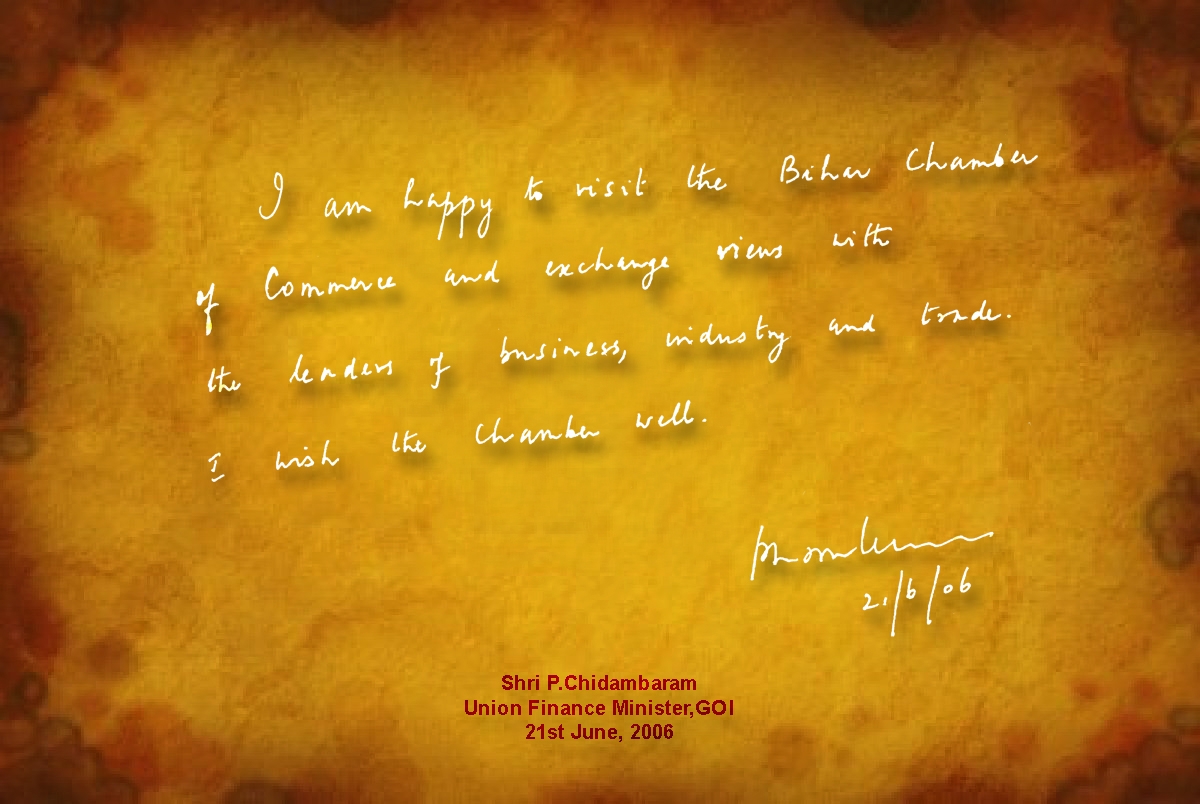 I am happy to visit the Bihar Chamber
of Commerce and exchange views with
the leaders of business, industry and trade.
I wish the Chamber well.
21/6/06
Shri P.Chidambaram
Union Finance Minister,GOI
21st June, 2006